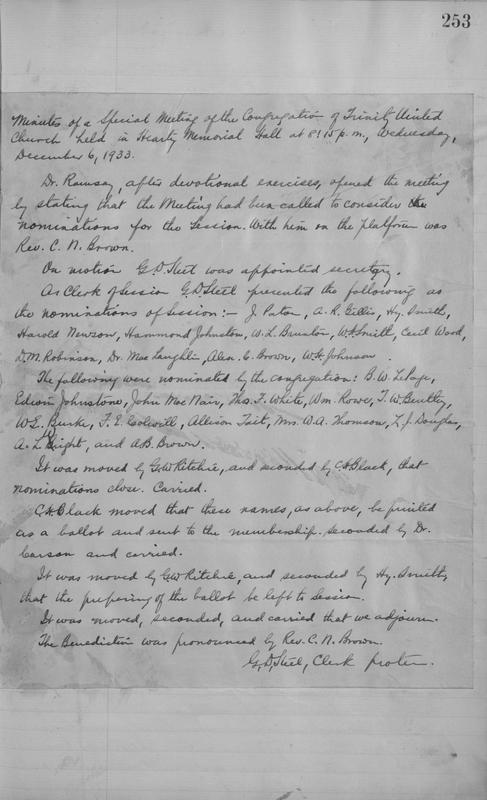 253
Minutes of a Special Meeting of the Congregation of Trinity United
Church held in Heartz Memorial Hall at 8:15 p.m., Wednesday,
December 6, 1933.
Dr. Ramsay, after devotional exercises, opened the meeting
by stating that the Meeting had been called to consider the
nominations for the Session. With him on the platform was
Rev. C. N. Brown.
On motion G.D. Steel was appointed secretary.
As Clerk of Session G.D. Steel presented the following as
the nominations of Session:- J. Paton, A.R. Gillis, Hy. Smith,
Harold Newson, Hammond Johnston, W.L. W.A. Smith, Cecil Wood,
D.M. Robinson, Dr. MacLaughlin, Alan C. Brown, W.H. Johnson.
The following were nominated by the congregation: B.W. LePage,
Edwin Johnstone, John MacNair, Thos. F. White, Wm. Rowe, T.W. Bentley,
W.E. Burke, F.E. Colwill, Allison Tait, Mrs. W.A. Thomson, L.J. Douglas,
A.L. Bright, and A.B. Brown.
It was moved by G.W. Ritchie, and seconded by C.H. Black, that
nominations close. Carried.
C.H. Black moved that these names, as above, be printed
as a ballot and sent to the membership. Seconded by Dr.
Carson and carried.
It was moved by G.W. Ritchie, and seconded by Hy. Smith,
that the preparing of the ballot be left to Session.
It was moved, seconded, and carried that we adjourn.
The Benediction was pronounced by Rev. C. N. Brown.
G.D. Steel, Clerk protem.